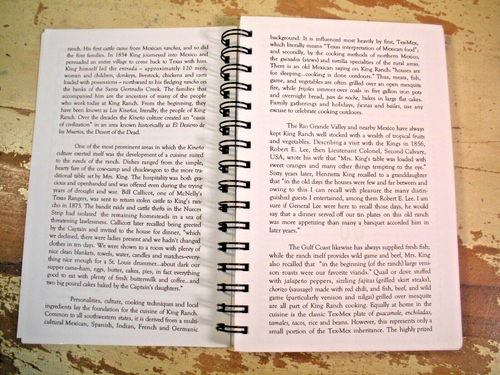 ranch. His first cattle came from Mexican ranches, and so did
the first families. In 1854 King journeyed into Mexico and
persuaded an entire village to come back to Texas with him.
King himself led the entrada - approximately 120 men,
women and children, donkeys, livestock, chickens and carts
loaded with possessions - northward to his fledgling rancho on
the banks of the Santa Gertrudis Creek. The families that
accompanied him are the ancestors of many of the people
who work today at King Ranch. From the beginning, they
have been known as Los Kineños, literally, the people of King
Ranch. Over the decades the Kineño culture created an "oasis
of civilization" in an area known historically as El Desierto de
los Muertos, the Desert of the Dead.
One of the most prominent areas in which the Kineño
culture exerted itself was the development of a cuisine suited
to the needs of the ranch. Dishes ranged from the simple,
hearty fare of the cow-camp and chuckwagon to the more tra-
ditional table set by Mrs. King. The hospitality was both gra-
cious and openhanded and was offered even during the trying
years of drought and war. Bill Callicot, one of McNelly's
Texas Rangers, was sent to return stolen cattle to King's ran-
cho in 1875. The bandit raids and cattle thefts in the Nueces
Strip had isolated the remaining homesteads in a sea of
threatening lawlessness. Callicot later recalled being greeted
by the Captain and invited to the house for dinner, "which
we declined, there were ladies present and we hadn't changed
clothes in ten days. We were shown to a room with plenty of
nice clean blankets, towels, water, candles and matches-every-
thing nice enough for a St. Louis drummer...about dark our
supper came-ham, eggs, butter, cakes, pies, in fact everything
good to eat with plenty of fresh buttermilk and coffee...and
two big pound cakes baked by the Captain's daughters."
Personalities, culture, cooking techniques and local
ingredients lay the foundation for the cuisine of King Ranch.
Common to all southwestern states, it is derived from a multi-
cultural Mexican, Spanish, Indian, French and Germanic
background. It is influenced most heavily by first, Tex-Mex,
which literally means "Texas interpretation of Mexican food";
and secondly, by the cooking methods of northern Mexico,
the guisadas (stews) and tortilla specialties of the rural areas.
There is an old Mexican saying on King Ranch "houses are
for sleeping...cooking is done outdoors." Thus, meats, fish,
game, and vegetables are often grilled over an open mesquite
fire, while frijoles simmer over coals in five gallon iron pots
and overnight bread, pan de noche, bakes in large flat cakes.
Family gatherings and holidays, fiestas and bailes, use any
excuse to celebrate cooking outdoors.
The Rio Grande Valley and nearby Mexico have always
kept King Ranch well stocked with a wealth of tropical fruits
and vegetables. Describing a visit with the Kings in 1856,
Robert E. Lee, then Lieutenant Colonel, Second Calvary,
USA, wrote his wife that "Mrs. King's table was loaded with
sweet oranges and many other things tempting to the eye."
Sixty years later, Henrietta King recalled to a granddaughter
that "in the old days the houses were few and far between and
owing to this I can recall with pleasure the many distin-
guished guests I entertained, among them Robert E. Lee. I am
sure if General Lee were here to recall those days, he would
say that a dinner served off our tin plates on this old ranch
was more appetizing than many a banquet accorded him in
later years."
The Gulf Coast likewise has always supplied fresh fish;
while the ranch itself provides wild game and beef, Mrs. King
also recalled that "in the beginning (of the ranch) large veni-
son roasts were our favorite viands." Quail or dove stuffed
with jalapeño peppers, sizzling fajitas (grilled skirt steaks),
chorizo (sausage) made with red chili, and fish, beef, and wild
game (particularly venison and nilgai) grilled over mesquite
are all part of King Ranch cooking. Equally at home in the
cuisine is the classic Tex-Mex plate of guacamole, enchiladas,
tamales, tacos, rice and beans. However, this represents only a
small portion of the Tex-Mex inheritance. The highly prized